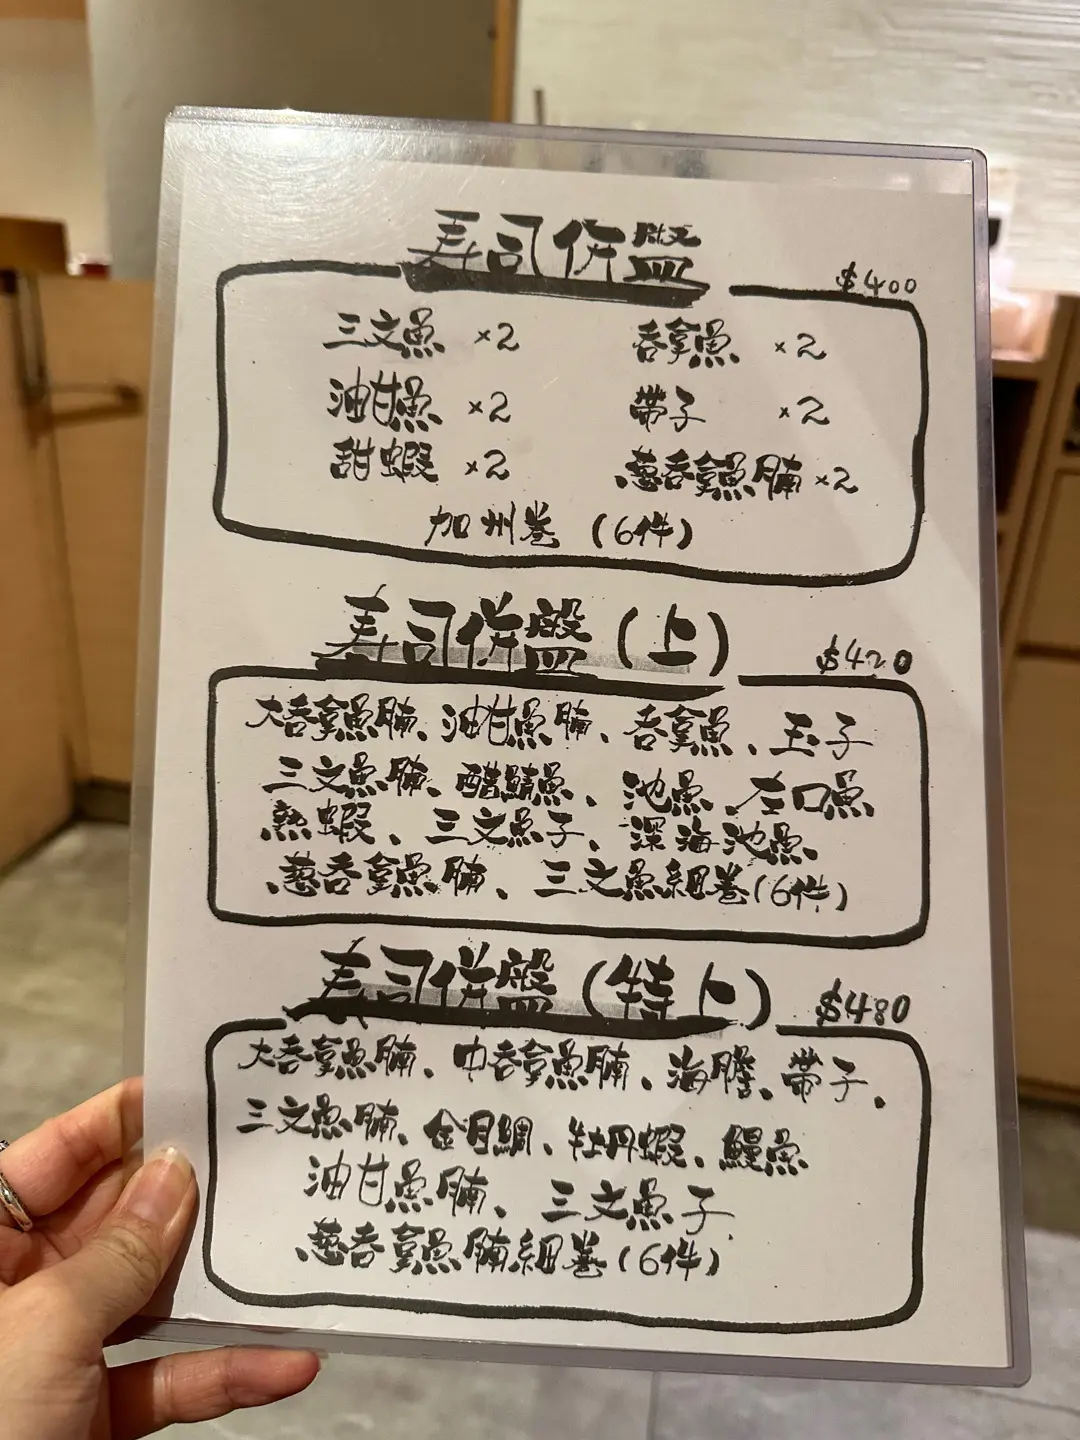 寿司併盤
$400
三文魚 ×2 吞拿魚 ×2
油甘魚 ×2 帶子 ×2
甜蝦 ×2 葱吞拿魚腩 ×2
加州卷 (6件)
寿司併盤(上)
$420
大吞拿魚腩、油甘魚腩、吞拿魚、玉子
三文魚腩、醋鯖魚、池魚、左口魚
熟蝦、三文魚子、深海池魚、
葱吞拿魚腩、三文魚細卷(6件)
寿司併盤(特上)
$480
大吞拿魚腩、中吞拿魚腩、海膽、帶子、
三文魚腩、金目鯛、牡丹蝦、鰻魚
油甘魚腩、三文魚子
葱吞拿魚腩細卷(6件)